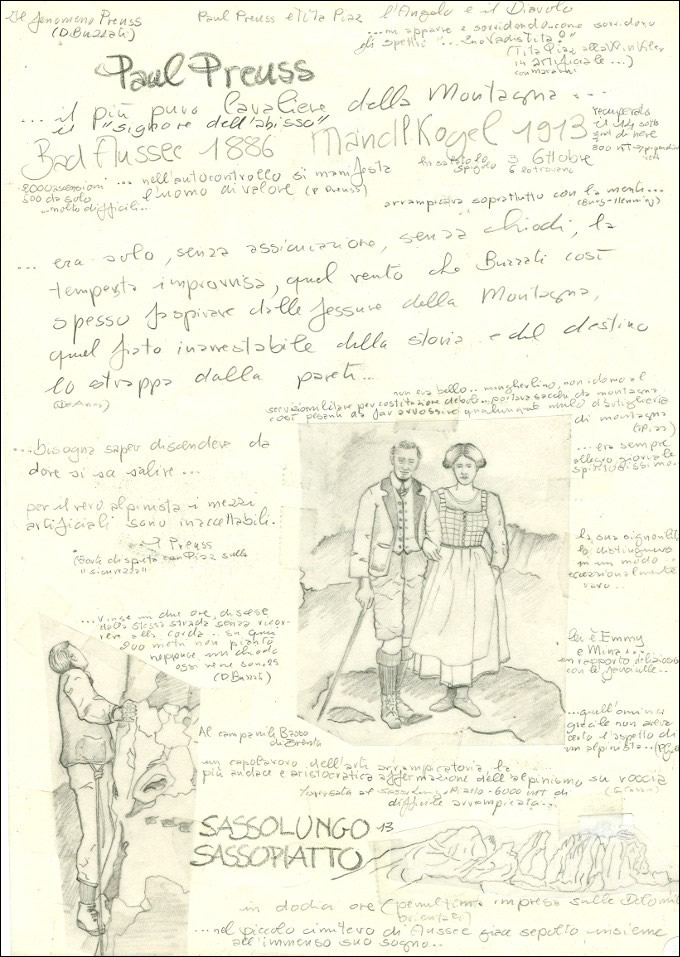 Il fenomeno Preuss
(D. Buzzati)
Paul Preuss e Tita Piaz l'Angelo e il Diavolo
...mi apparve e sorridendo come sorridono
gli spettri
(Tita Piaz alla Winkler
artificiale...)
Paul Preuss
... il più puro Cavaliere della Montagna ...
il "signore dell'abisso"
Bad Aussee 1886 Mandlkogel 1913
recuperato
il 14 sotto
di neve
300 MT
3 Ottobre
... nell'autocontrollo si manifesta
l'uomo di valore (P. Preuss)
2000 ascensioni
500 da solo
...molto difficili...
arrampicava soprattutto con la mente...
... era solo, senza assicurazione, senza chiodi, la
tempesta improvvisa, quel vento che Buzzati così
spesso fa spirare dalle fessure della Montagna,
quel fiato inarrestabile della storia e del destino
lo strappa dalla parete...
non era bello.. mingherlino, non idoneo al
servizio militare per costituzione debole.. portava sacchi da montagna
così pesanti da far arrossire qualunque mulo d'artiglieria
di montagna
(T. Piaz)
...bisogna saper discendere da
dove si sa salire...
... era sempre
allegro gioviale
spiritosissimo..
per il vero alpinista i mezzi
artificiali sono inaccettabili.
Preuss
disputa con Piaz sulla
"sicurezza"
la sua signorilità
lo distingueva
in un modo
eccezionalmente
raro..
...vinse in due ore, discese
dalla stessa strada senza ricor-
rere alla corda... su quei
200 metri non piantò
neppure un chiodo
oggi ve ne sono
(D. Buzzati)
lui è Emmy
e Mina
un rapporto delizioso
con le fanciulle..
...quell'omino
gracile non aveva
certo l'aspetto di
un alpinista..
Al campanile Basso
di Brenta
un capolavoro dell'arte arrampicatoria, la
più audace e aristocratica affermazione dell'alpinismo su roccia
Traversata al Sassolungo - Piatto - 6000 MT di
difficile arrampicata...
SASSOLUNGO 13
SASSOPIATTO
in dodici ore (penultima impresa sulle Dolomiti
orientali)
...nel piccolo cimitero di Aussee giace sepolto insieme
all'immenso suo sogno..